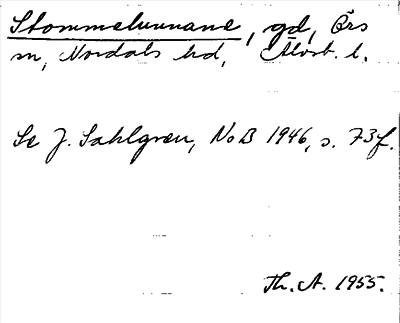 Stommelunnane, gd, Örs
m, Nordals hd, Älvsb. l.
Se J. Sahlgren, NoB 1946, s. 73f.
Th. A. 1955.